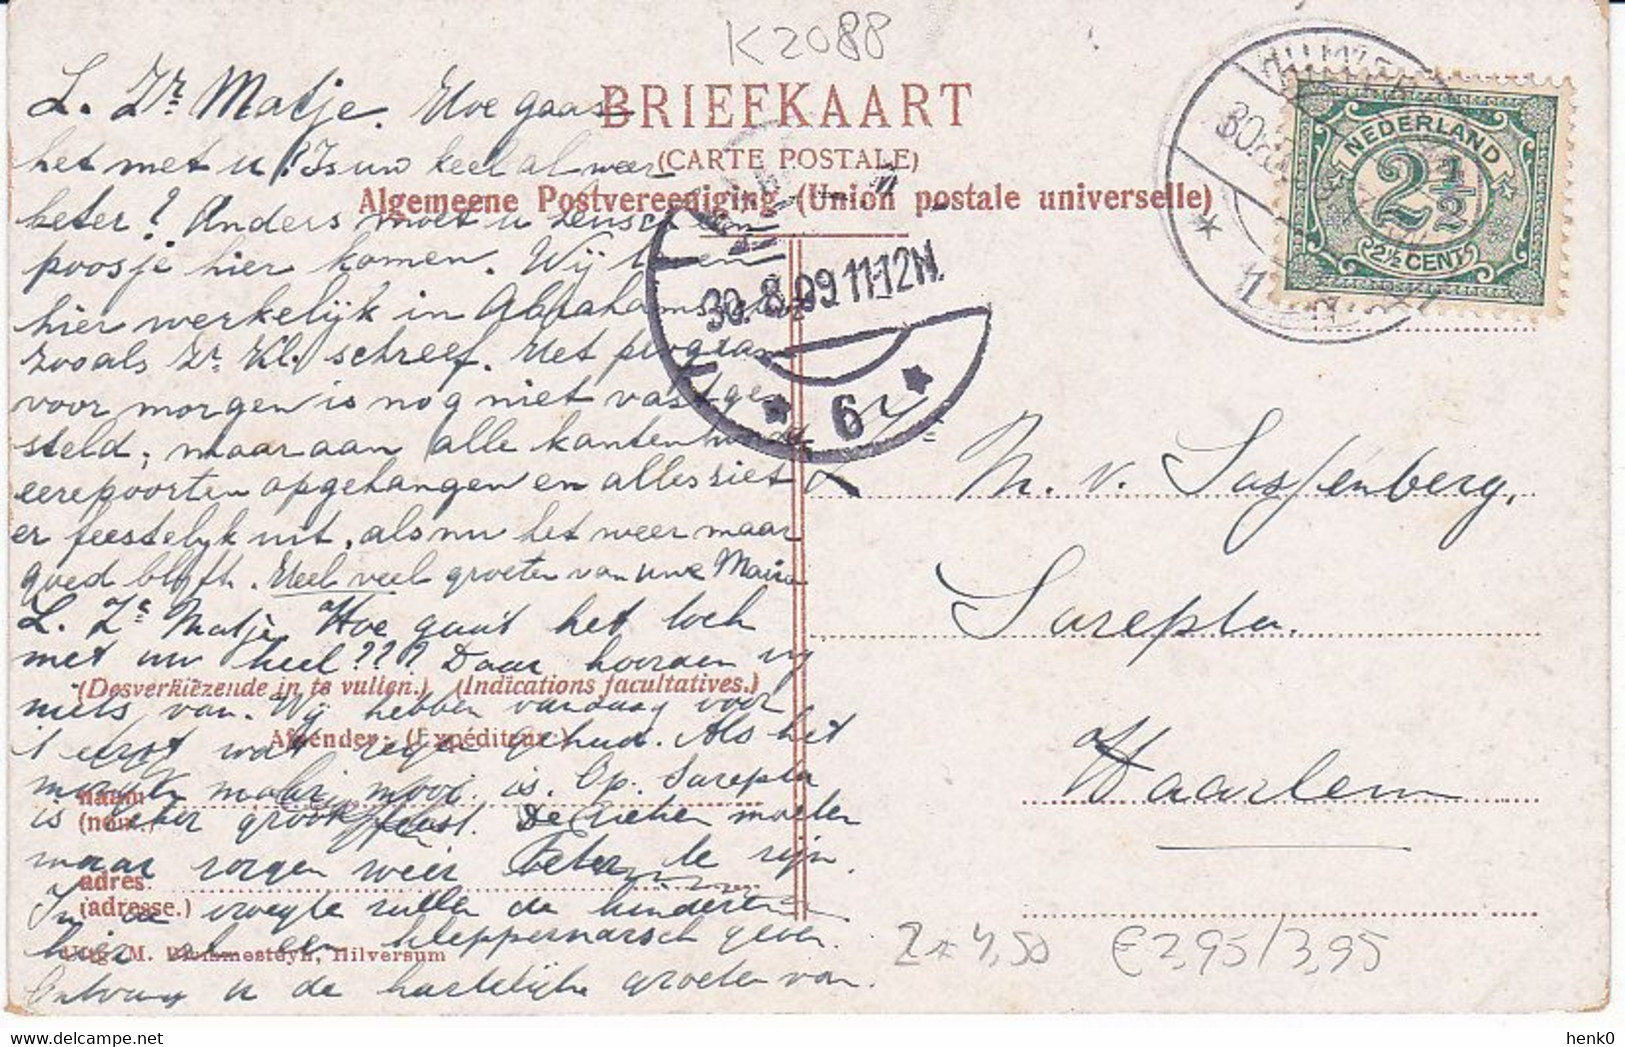 K2088
BRIEFKAART
(CARTE POSTALE)
Algemeene Postvereeniging (Union postale universelle)
L. Zr. Matje. Hoe gaat
het met u? Is uw keel al weer
beter? Anders moet u eens een
poosje hier komen. Wij
hier werkelijk in
zooals Zr. Kl. schreef. Het program
voor morgen is nog niet vastge-
steld, maar aan alle kanten
eerepoorten opgehangen en alles ziet
er feestelijk uit, als nu het weer maar
goed blijft. Veel veel groeten van uwe
L. Zr. Matje Hoe gaat het toch
met uw keel??? Daar hooren wij
niets van. Wij hebben vandaag voor
't eerst wat regen gehad. Als het
morgen maar mooi is. Op Sarepta
is zeker groot feest. De zieken moeten
maar zorgen weer beter te zijn.
In de vroegte zullen de kinderen
hier al een kleppermarsch geven.
Ontvang u de hartelijke groeten van.
(Desverkiezende in te vullen.) (Indications facultatives.)
Afzender: (Expéditeur.)
naam
(nom.)
adres.
(adresse.)
Uitg. M. Blommesteyn, Hilversum
30.8.09 11-12N.
6
NEDERLAND
2½
2½ CENT
Zr.
M. v. Sassenberg,
Sarepta.
Haarlem
4,50
€2,95/3,95
henk0